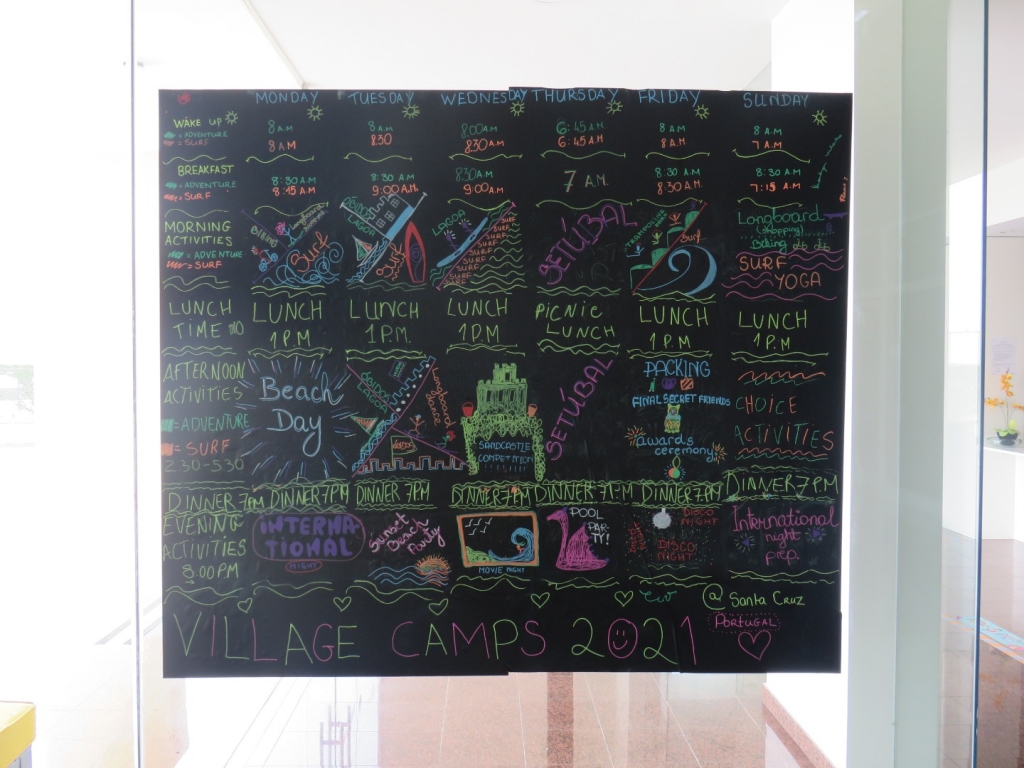 MONDAY TUESDAY WEDNESDAY THURSDAY FRIDAY SUNDAY
WAKE UP
= ADVENTURE
= SURF
8 A.M
8 A.M
8 A.M
8.30
8.00 A.M
8.30 A.M
6:45 A.M.
6:45 A.M
8 A.M
8 A.M.
8 A.M
7 A.M
BREAKFAST
= ADVENTURE
= SURF
8:30 A.M
8:15 A.M
8:30 A.M
9:00 A.M.
8:30 A.M
9:00 A.M.
7 A.M.
8.30 A.M
8:30 A.M.
8:30 A.M
7:15 A.M
MORNING
ACTIVITIES
= ADVENTURE
= SURF
BIKING
Surf
LAGOA
Surf
LAGOA
SURF
SURF
SURF
SURF
SURF
SURF
SURF
SETÚBAL
Surf
Longboard
Biking
SURF
YOGA
LUNCH
TIME
LUNCH
1 P.M
LUNCH
1 P.M.
LUNCH
1 P.M
PICNIC
LUNCH
LUNCH
1 P.M.
LUNCH
1 P.M.
AFTERNOON
ACTIVITIES
= ADVENTURE
= SURF
2:30-5:30
Beach
Day
SANDCASTLE
COMPETITION
SETÚBAL
PACKING
FINAL SECRET FRIENDS
awards
ceremony
CHOICE
ACTIVITIES
DINNER 7PM DINNER 7PM DINNER 7PM DINNER 7PM DINNER 7PM DINNER 7PM DINNER 7PM
EVENING
ACTIVITIES
8.00 PM
INTERNA-
TIONAL
NIGHT
Sunset
Beach
Party
MOVIE NIGHT
POOL
PAR-
TY!
DISCO
NIGHT
DISCO
NIGHT
International
night
prep.
@ Santa Cruz
PORTUGAL
VILLAGE CAMPS 2021